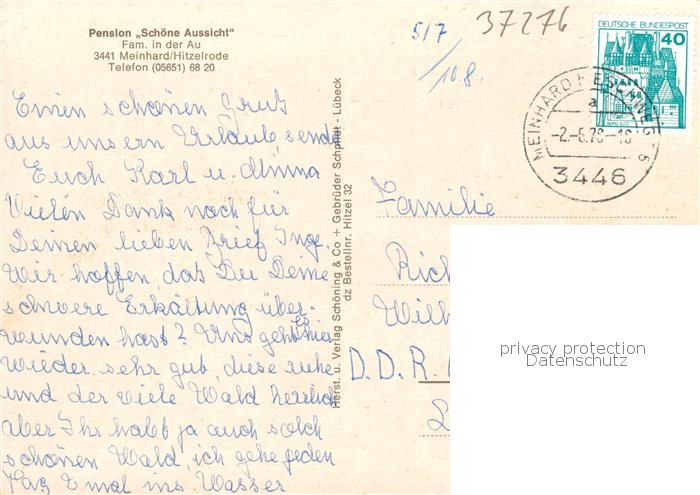 Pension „Schöne Aussicht"
Fam. in der Au
3441 Meinhard/Hitzelrode
Telefon (05651) 68 20
517
/108.
37276
DEUTSCHE BUNDESPOST
40
MEINHARD
a
-2.-6.78-18
3446
Einen schönen Gruß
aus unserm Urlaub, sende
Euch Karl u. Minna
Vielen Dank noch für
Deinen lieben Brief Inge
Wir hoffen, das Du Deine
schwere Erkältung über-
wunden hast? Uns geht es hier
wieder sehr gut, diese ruhe
und der viele Wald herrlich
aber Ihr habt ja auch solch
schönen Wald, ich gehe jeden
Tag 2 mal ins Wasser
Herst. u. Verlag Schöning & Co + Gebrüder Schmidt - Lübeck
dz Bestellnr. Hitzel 32
Familie
Rich
Wilh
D.D.R.
privacy protection
Datenschutz